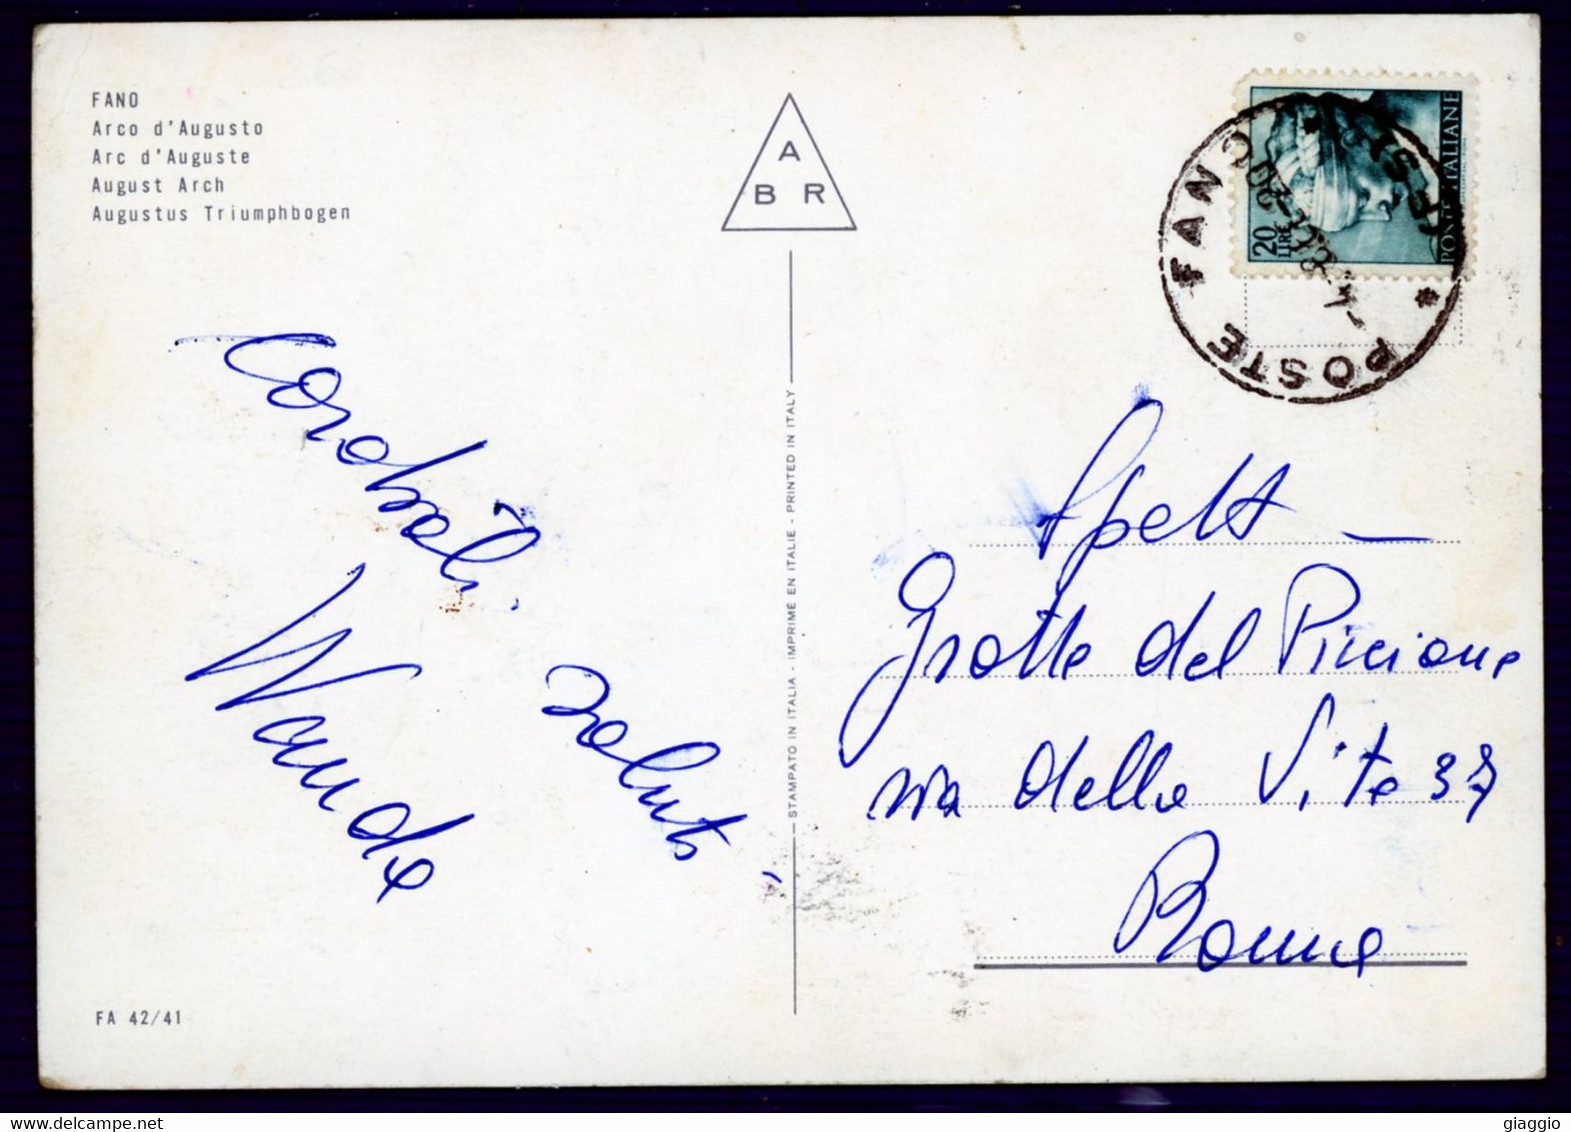 FANO
Arco d'Augusto
Arc d'Auguste
August Arch
Augustus Triumphbogen
A
B R
20
LIRE
POSTE ITALIANE
FANO
POSTE
Cordiali saluti
Wanda
STAMPATO IN ITALIA - IMPRIME EN ITALIE - PRINTED IN ITALY
Spett
Grotte del Piccione
via della Vite 37
Roma
FA 42/41
delcampe.net
giaggio